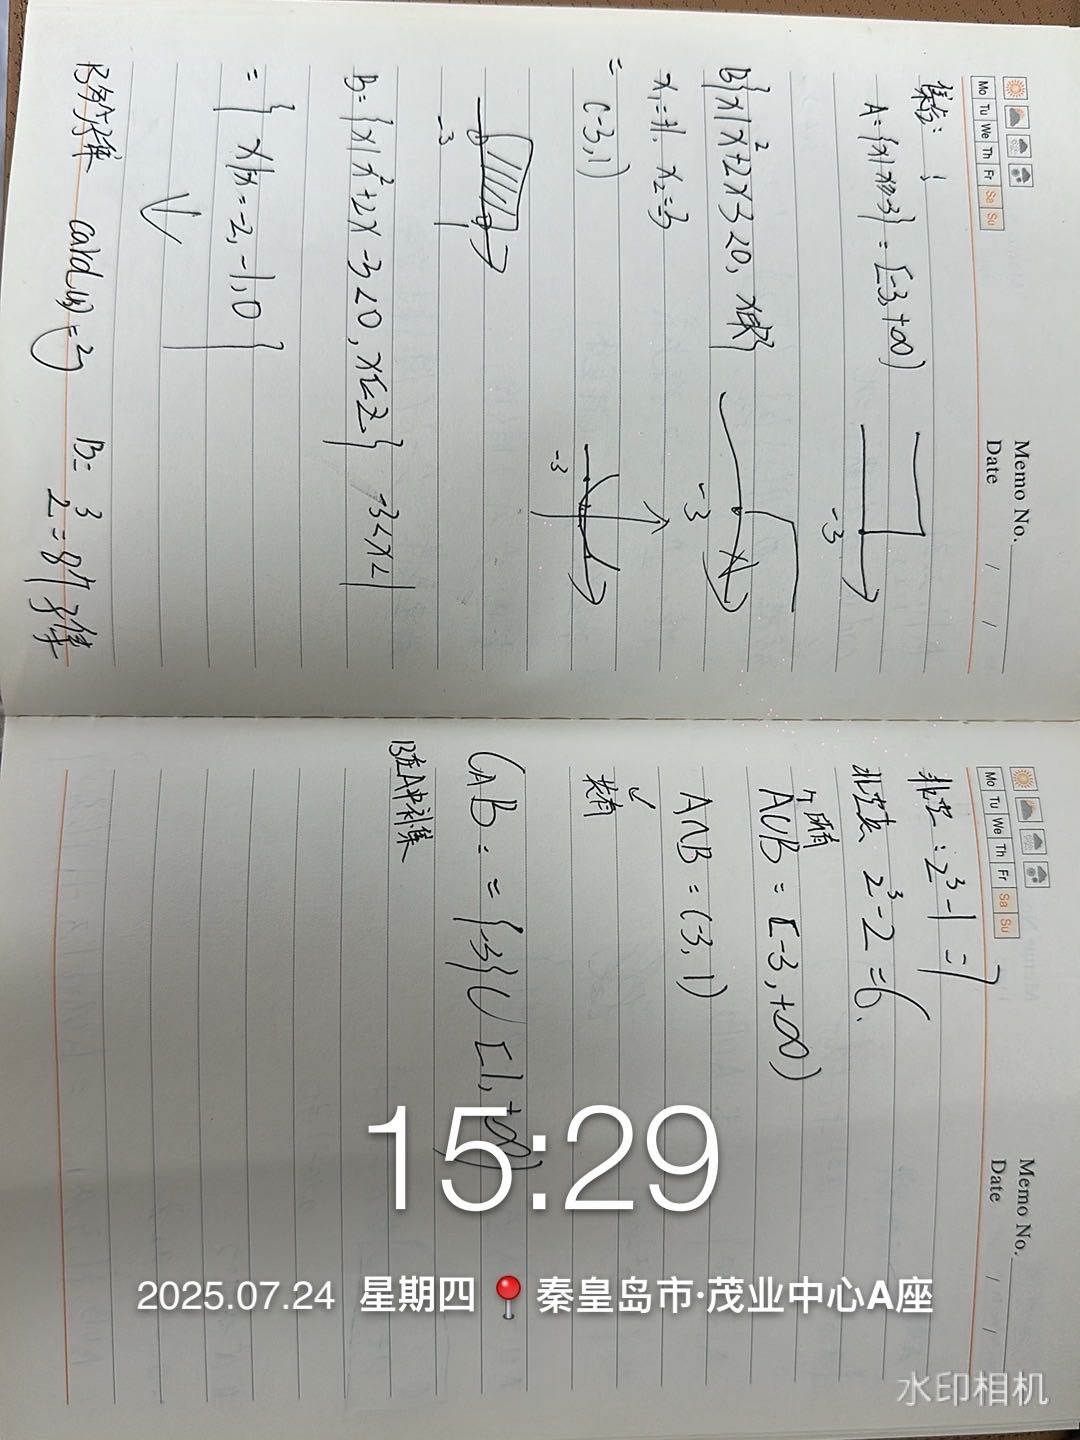 Mo Tu We Th Fr Sa Su
Memo No.
Date / /
集合：
A={x|x≥-3} = [-3,+∞)
-3
B{x|x²+2x-3<0, x∈R}
-3
x₁=1, x₂=-3
= (-3,1)
-3
-3 1
B={x|x²+2x-3<0, x∈Z} -3<x<1
={x|x=-2,-1,0}
子集 card(B)=3 B= 2³=8个子集
Mo Tu We Th Fr Sa Su
Memo No.
Date / /
非空：2³-1=7
非空真 2³-2=6.
A∪B = [-3,+∞)
所有
A∩B = (-3,1)
共有
C_AB = = {-3}∪[1,+∞)
B在A中补集
15:29
2025.07.24 星期四 秦皇岛市·茂业中心A座
水印相机